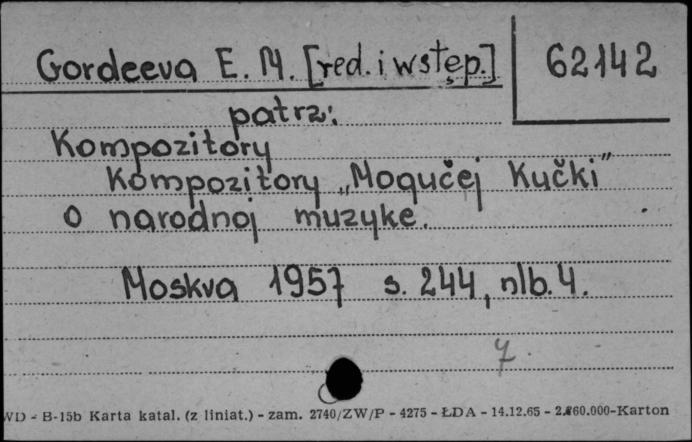 Gordeeva E. M. [red. i wstęp.]
62142
patrz:
Kompozitory
Kompozitory „Mogučej Kučki"
o narodnoj muzyke.
Moskva 1957 s. 244, nlb. 4.
7.
WD - B-15b Karta katal. (z liniat.) - zam. 2740/ZW/P - 4275 - ŁDA - 14.12.65 - 2.860.000-Karton